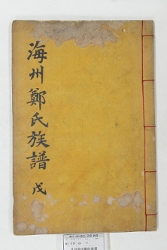 海州鄭氏族譜 戊